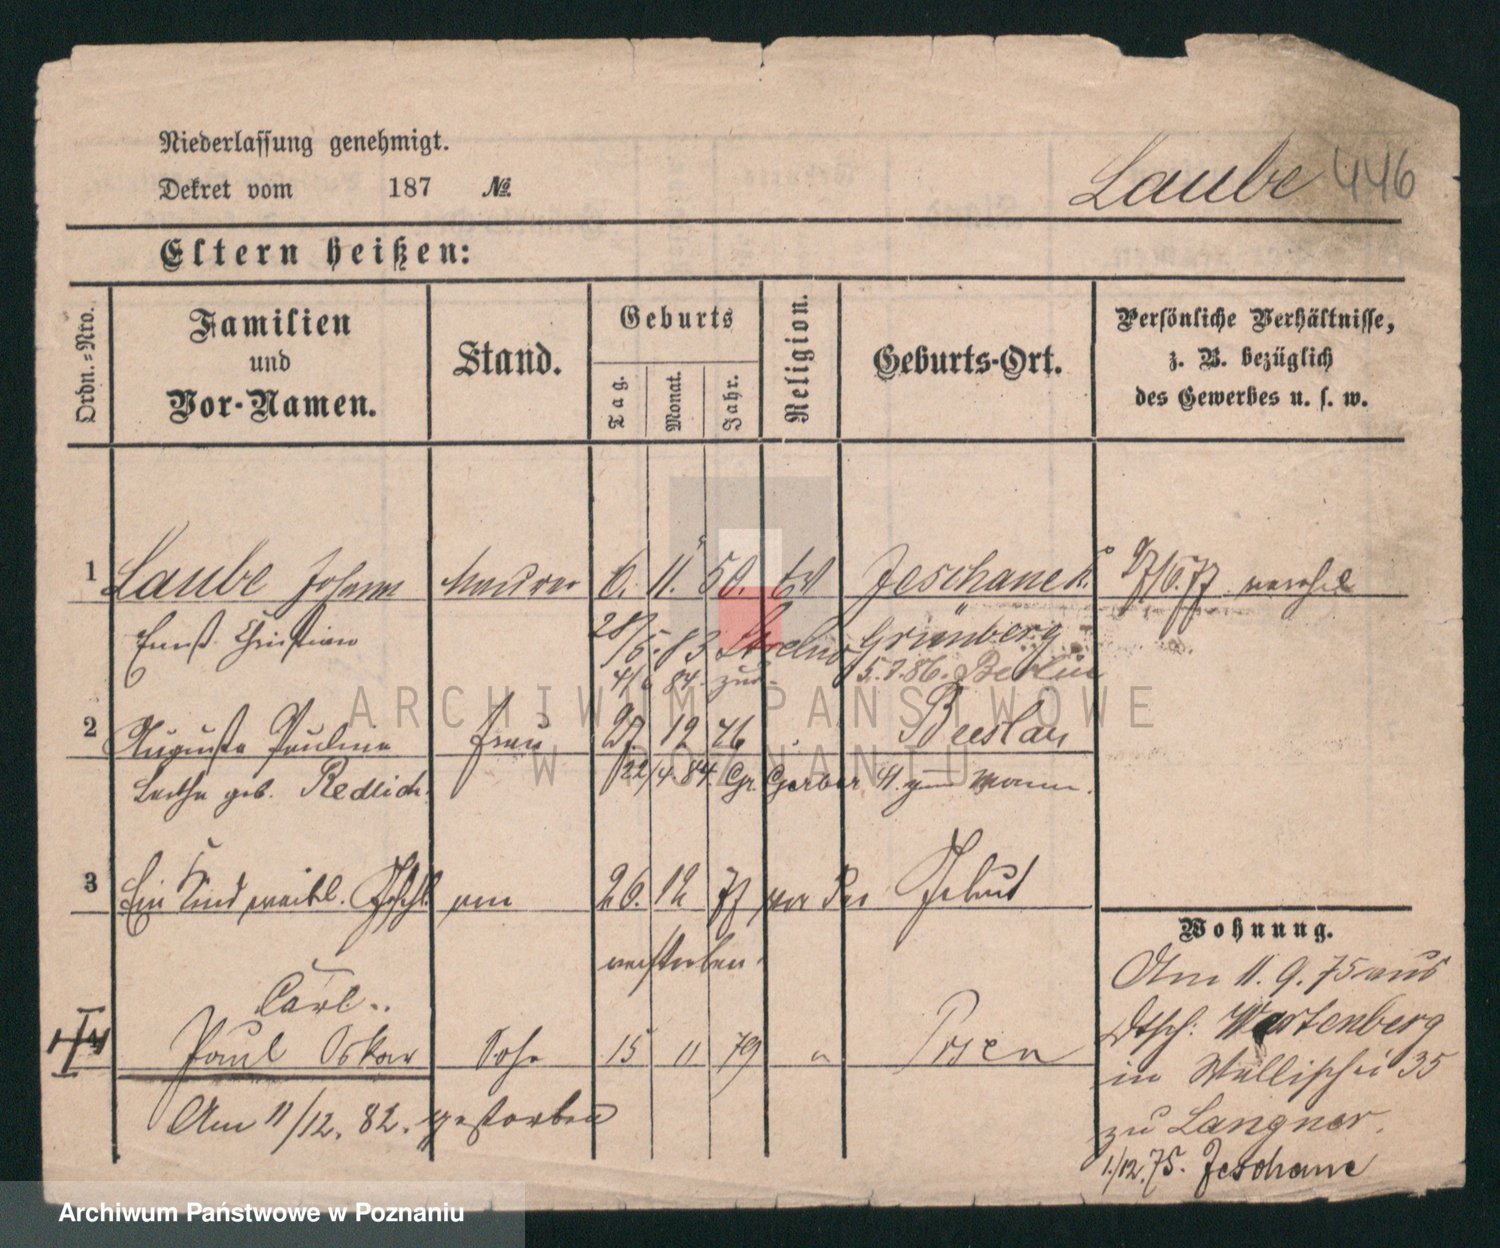 Niederlassung genehmigt.
Dekret vom 187 №
Laube 446
Eltern heißen:
Ordn.=Nro.
Familien
und
Vor-Namen.
Stand.
Geburts
Tag.
Monat.
Jahr.
Religion.
Geburts-Ort.
Persönliche Verhältnisse,
z. B. bezüglich
des Gewerbes u. s. w.
1 Laube Johann Maurer 6. 11. 50. Ev Jeschane 7/6.77
Ernst Christian 28/5. 83 Strelno Grünberg
4/6 84. zur. 5.7.86. Berlin
2 Auguste Pauline Frau 27 12 46 Breslau
geb. Redlich. 22/4.84. Gr. Gerber 4. zum Mann.
3 Ein Kind weibl. Geschl. 26. 12 77 vor der Geburt
verstorben.
Carl..
Paul Oskar Sohn 15 11 79 " Posen
Am 11/12. 82. gestorben
Wohnung.
Am 11. 9. 75 aus
Dtsch: Wartenberg
in Wallischei 35
zu Langner.
1/12.75. Jeschane
ARCHIWUM PAŃSTWOWE
W POZNANIU
Archiwum Państwowe w Poznaniu